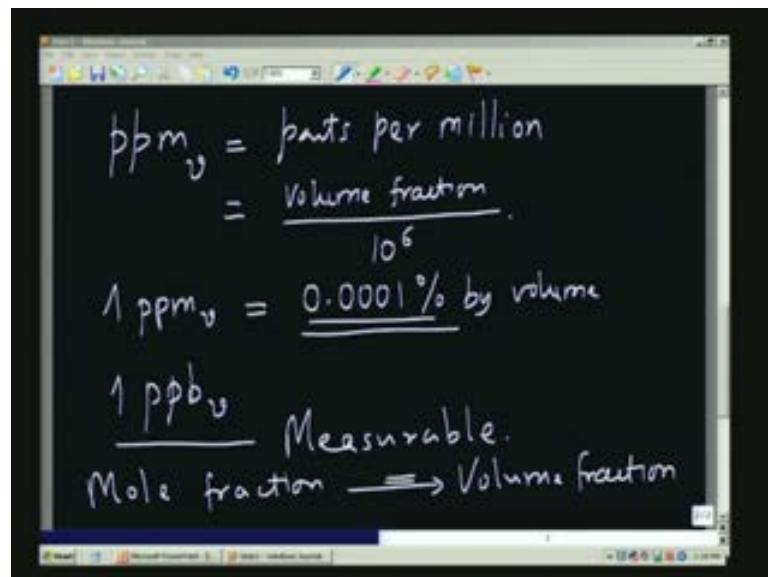 ppmv = parts per million
= volume fraction
10⁶
1 ppmv = 0.0001% by volume
1 ppbv
Measurable.
Mole fraction ⟹ Volume fraction